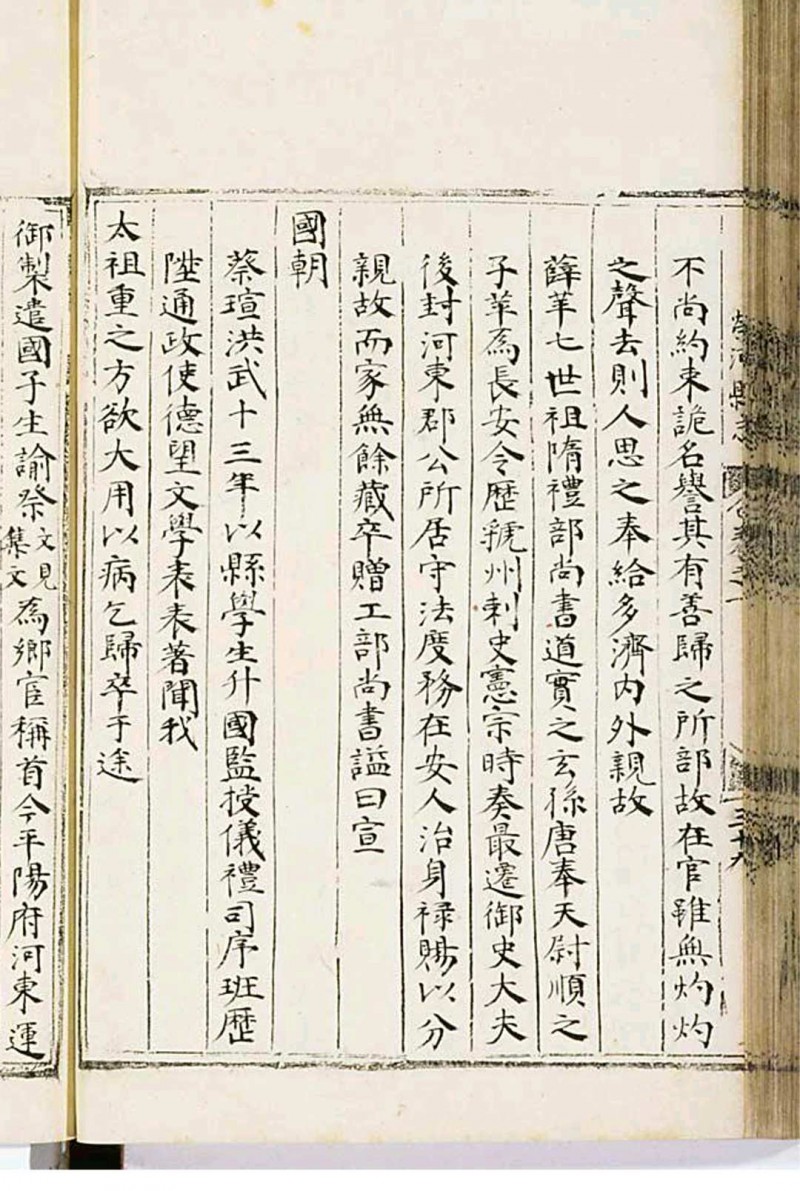 不尚約束詭名譽其有善歸之所部故在官雖無灼灼
之聲去則人思之奉給多濟内外親故
薛苹七世祖隋禮部尚書道實之玄孫唐奉天尉順之
子苹爲長安令歷虢州刺史憲宗時奏最遷御史大夫
後封河東郡公所居守法度務在安人治身禄賜以分
親故而家無餘藏卒贈工部尚書謚曰宣
國朝
蔡瑄洪武十三年以縣學生升國監授儀禮司序班歷
陞通政使德望文學表表著聞我
太祖重之方欲大用以病乞歸卒于途
御製遣國子生諭祭文見文集爲鄉宦稱首今平陽府河東運